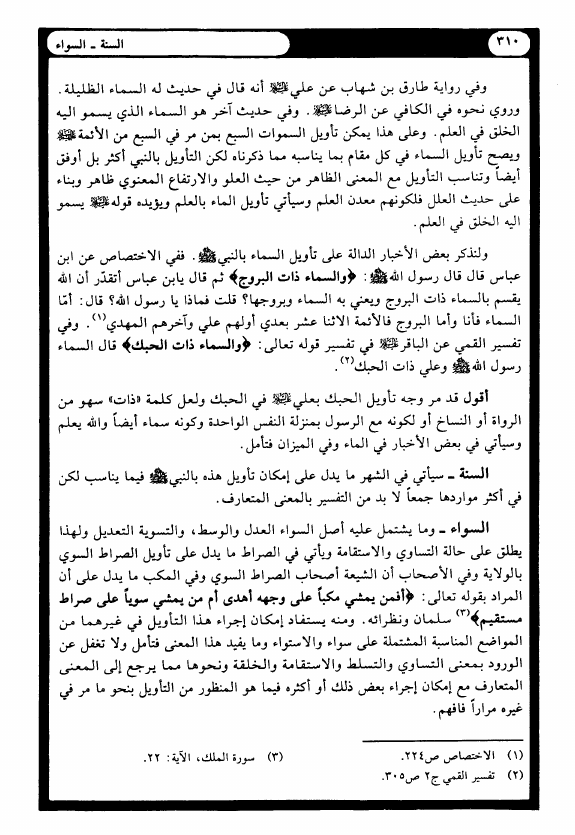 السنة ـ السواء
٣١٠
وفي رواية طارق بن شهاب عن علي ﵇ أنه قال في حديث له السماء الظليلة.
وروي نحوه في الكافي عن الرضا ﵇. وفي حديث آخر هو السماء الذي يسمو اليه
الخلق في العلم. وعلى هذا يمكن تأويل السموات السبع بمن مر في السبع من الأئمة ﵈
ويصح تأويل السماء في كل مقام بما يناسبه مما ذكرناه لكن التأويل بالنبي أكثر بل أوفق
أيضاً وتناسب التأويل مع المعنى الظاهر من حيث العلو والارتفاع المعنوي ظاهر وبناء
على حديث العلل فلكونهم معدن العلم وسيأتي تأويل الماء بالعلم ويؤيده قوله ﵇ يسمو
اليه الخلق في العلم.
ولنذكر بعض الأخبار الدالة على تأويل السماء بالنبي ﷺ. ففي الاختصاص عن ابن
عباس قال قال رسول الله ﷺ: ﴿والسماء ذات البروج﴾ ثم قال يابن عباس أتقدّر أن الله
يقسم بالسماء ذات البروج ويعني به السماء وبروجها؟ قلت فماذا يا رسول الله؟ قال: أمّا
السماء فأنا وأما البروج فالأئمة الاثنا عشر بعدي أولهم علي وآخرهم المهدي(١). وفي
تفسير القمي عن الباقر ﵇ في تفسير قوله تعالى: ﴿والسماء ذات الحبك﴾ قال السماء
رسول الله ﷺ وعلي ذات الحبك(٢).
أقول قد مر وجه تأويل الحبك بعلي ﵇ في الحبك ولعل كلمة «ذات» سهو من
الرواة أو النساخ أو لكونه مع الرسول بمنزلة النفس الواحدة وكونه سماء أيضاً والله يعلم
وسيأتي في بعض الأخبار في الماء وفي الميزان فتأمل.
السنة ـ سيأتي في الشهر ما يدل على إمكان تأويل هذه بالنبي ﷺ فيما يناسب لكن
في أكثر مواردها جمعاً لا بد من التفسير بالمعنى المتعارف.
السواء ـ وما يشتمل عليه أصل السواء العدل والوسط، والتسوية التعديل ولهذا
يطلق على حالة التساوي والاستقامة ويأتي في الصراط ما يدل على تأويل الصراط السوي
بالولاية وفي الأصحاب أن الشيعة أصحاب الصراط السوي وفي المكب ما يدل على أن
المراد بقوله تعالى: ﴿أفمن يمشي مكباً على وجهه أهدى أم من يمشي سوياً على صراط
مستقيم﴾(٣) سلمان ونظرائه. ومنه يستفاد إمكان إجراء هذا التأويل في غيرهما من
المواضع المناسبة المشتملة على سواء والاستواء وما يفيد هذا المعنى فتأمل ولا تغفل عن
الورود بمعنى التساوي والتسلط والاستقامة والخلقة ونحوها مما يرجع إلى المعنى
المتعارف مع إمكان إجراء بعض ذلك أو أكثره فيما هو المنظور من التأويل بنحو ما مر في
غيره مراراً فافهم.
(١) الاختصاص ص٢٢٤.
(٢) تفسير القمي ج٢ ص٣٠٥.
(٣) سورة الملك، الآية: ٢٢.